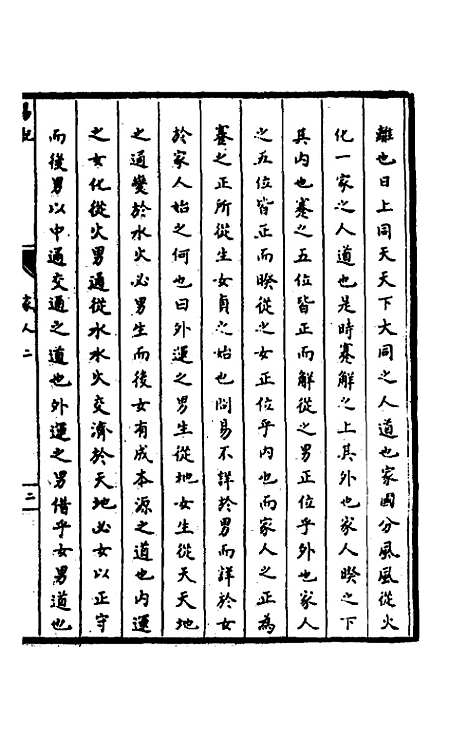 離也曰上同天天下大同之人道也家國分風風從火
化一家之人道也是時蹇解之上其外也家人睽之下
其內也蹇之五位皆正而解從之男正位乎外也家人
之五位皆正而睽從之女正位乎內也而家人之正為
蹇之正所從生女貞之始也問易不詳於男而詳於女
於家人始之何也曰外運之男生從地女生從天天地
之通變於水火必男生而後女有成本源之道也內運
之女化從火男通從水水火交濟於天地必女以正守
而後男以中通交通之道也外運之男借乎女男道也
易
家人二
二